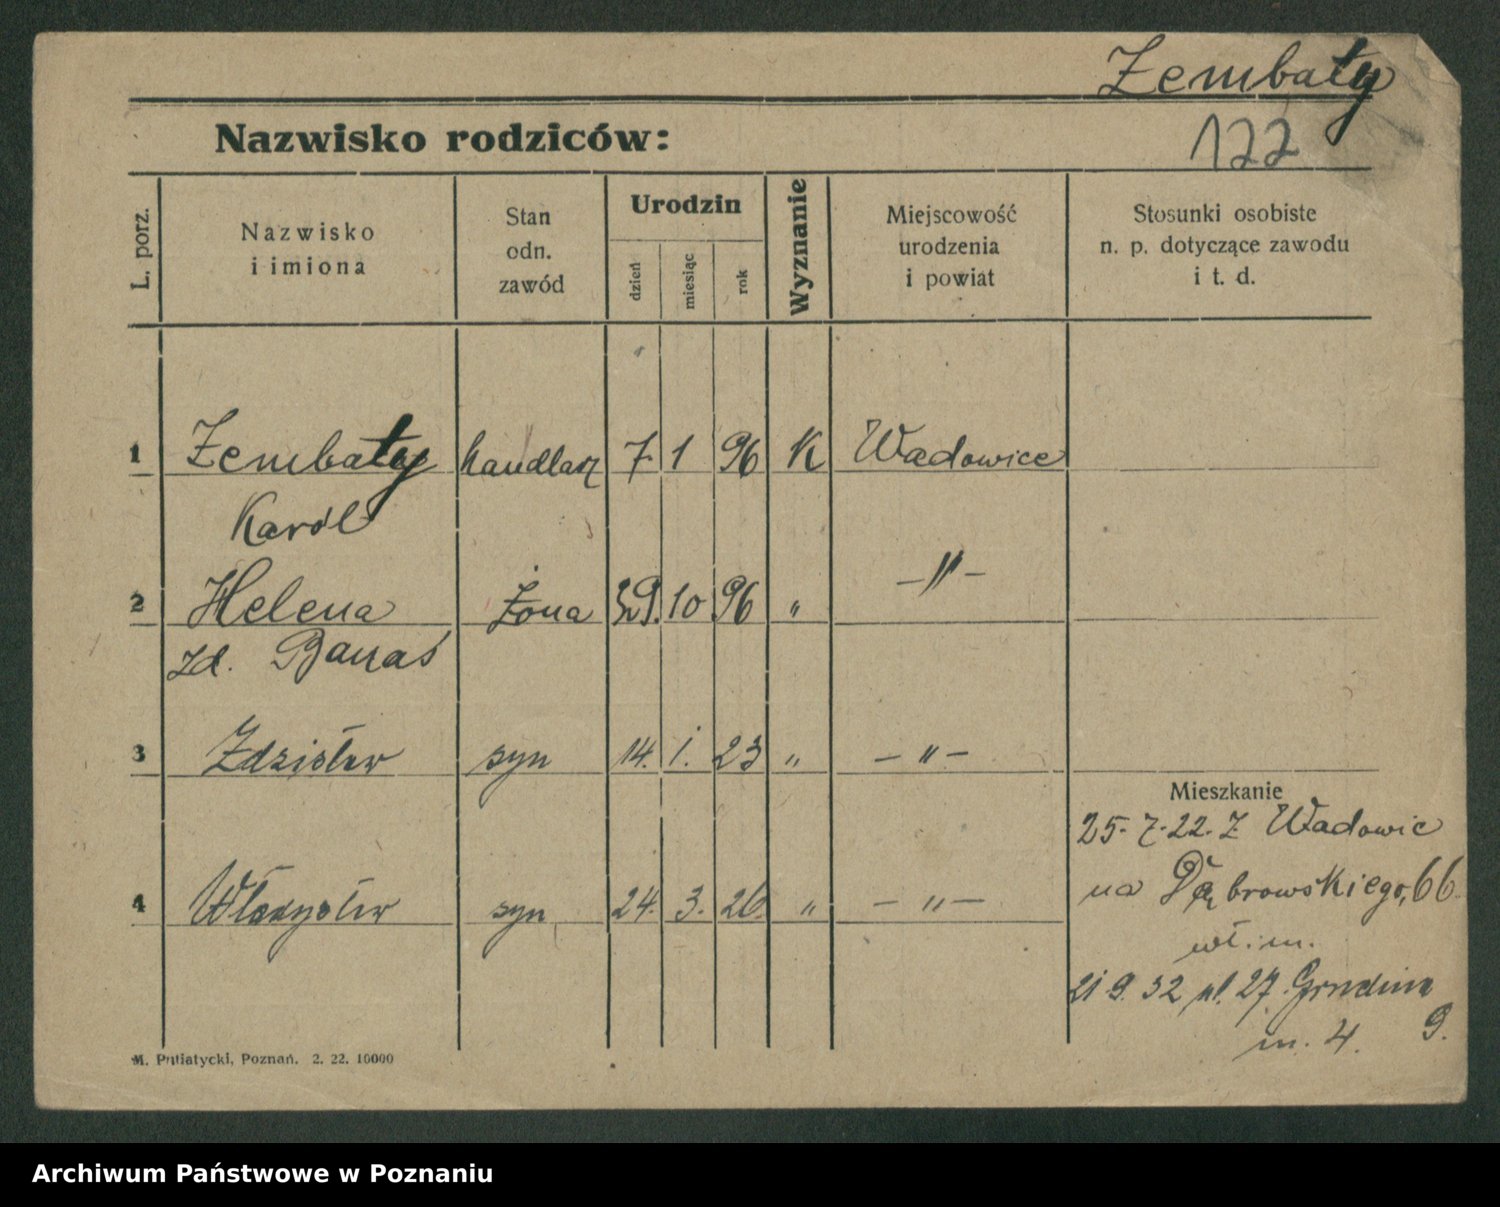 Zembaty
Nazwisko rodziców:
122
L. porz.
Nazwisko
i imiona
Stan
odn.
zawód
Urodzin
dzień
miesiąc
rok
Wyznanie
Miejscowość
urodzenia
i powiat
Stosunki osobiste
n. p. dotyczące zawodu
i t. d.
1 Zembaty handlarz 7 1 96 K Wadowice
Karol
2 Helena żona 29. 10 96 „ — " —
zd. Banaś
3 Zdzisław syn 14. 1. 23 „ — " —
Mieszkanie
25-7-22. Z Wadowic
4 Władysław syn 24. 3. 26. „ — " —
na Dąbrowskiego, 66.
wł. m.
21 9. 32 pl. 27 Grudnia
9.
m. 4.
M. Putiatycki, Poznań. 2. 22. 10000
Archiwum Państwowe w Poznaniu